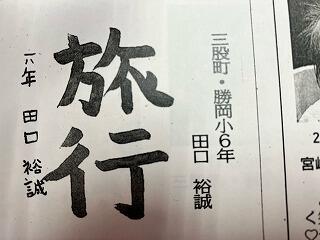 三股町・勝岡小6年
田口 裕誠
旅行
六年 田口 裕誠
2
宮崎
く